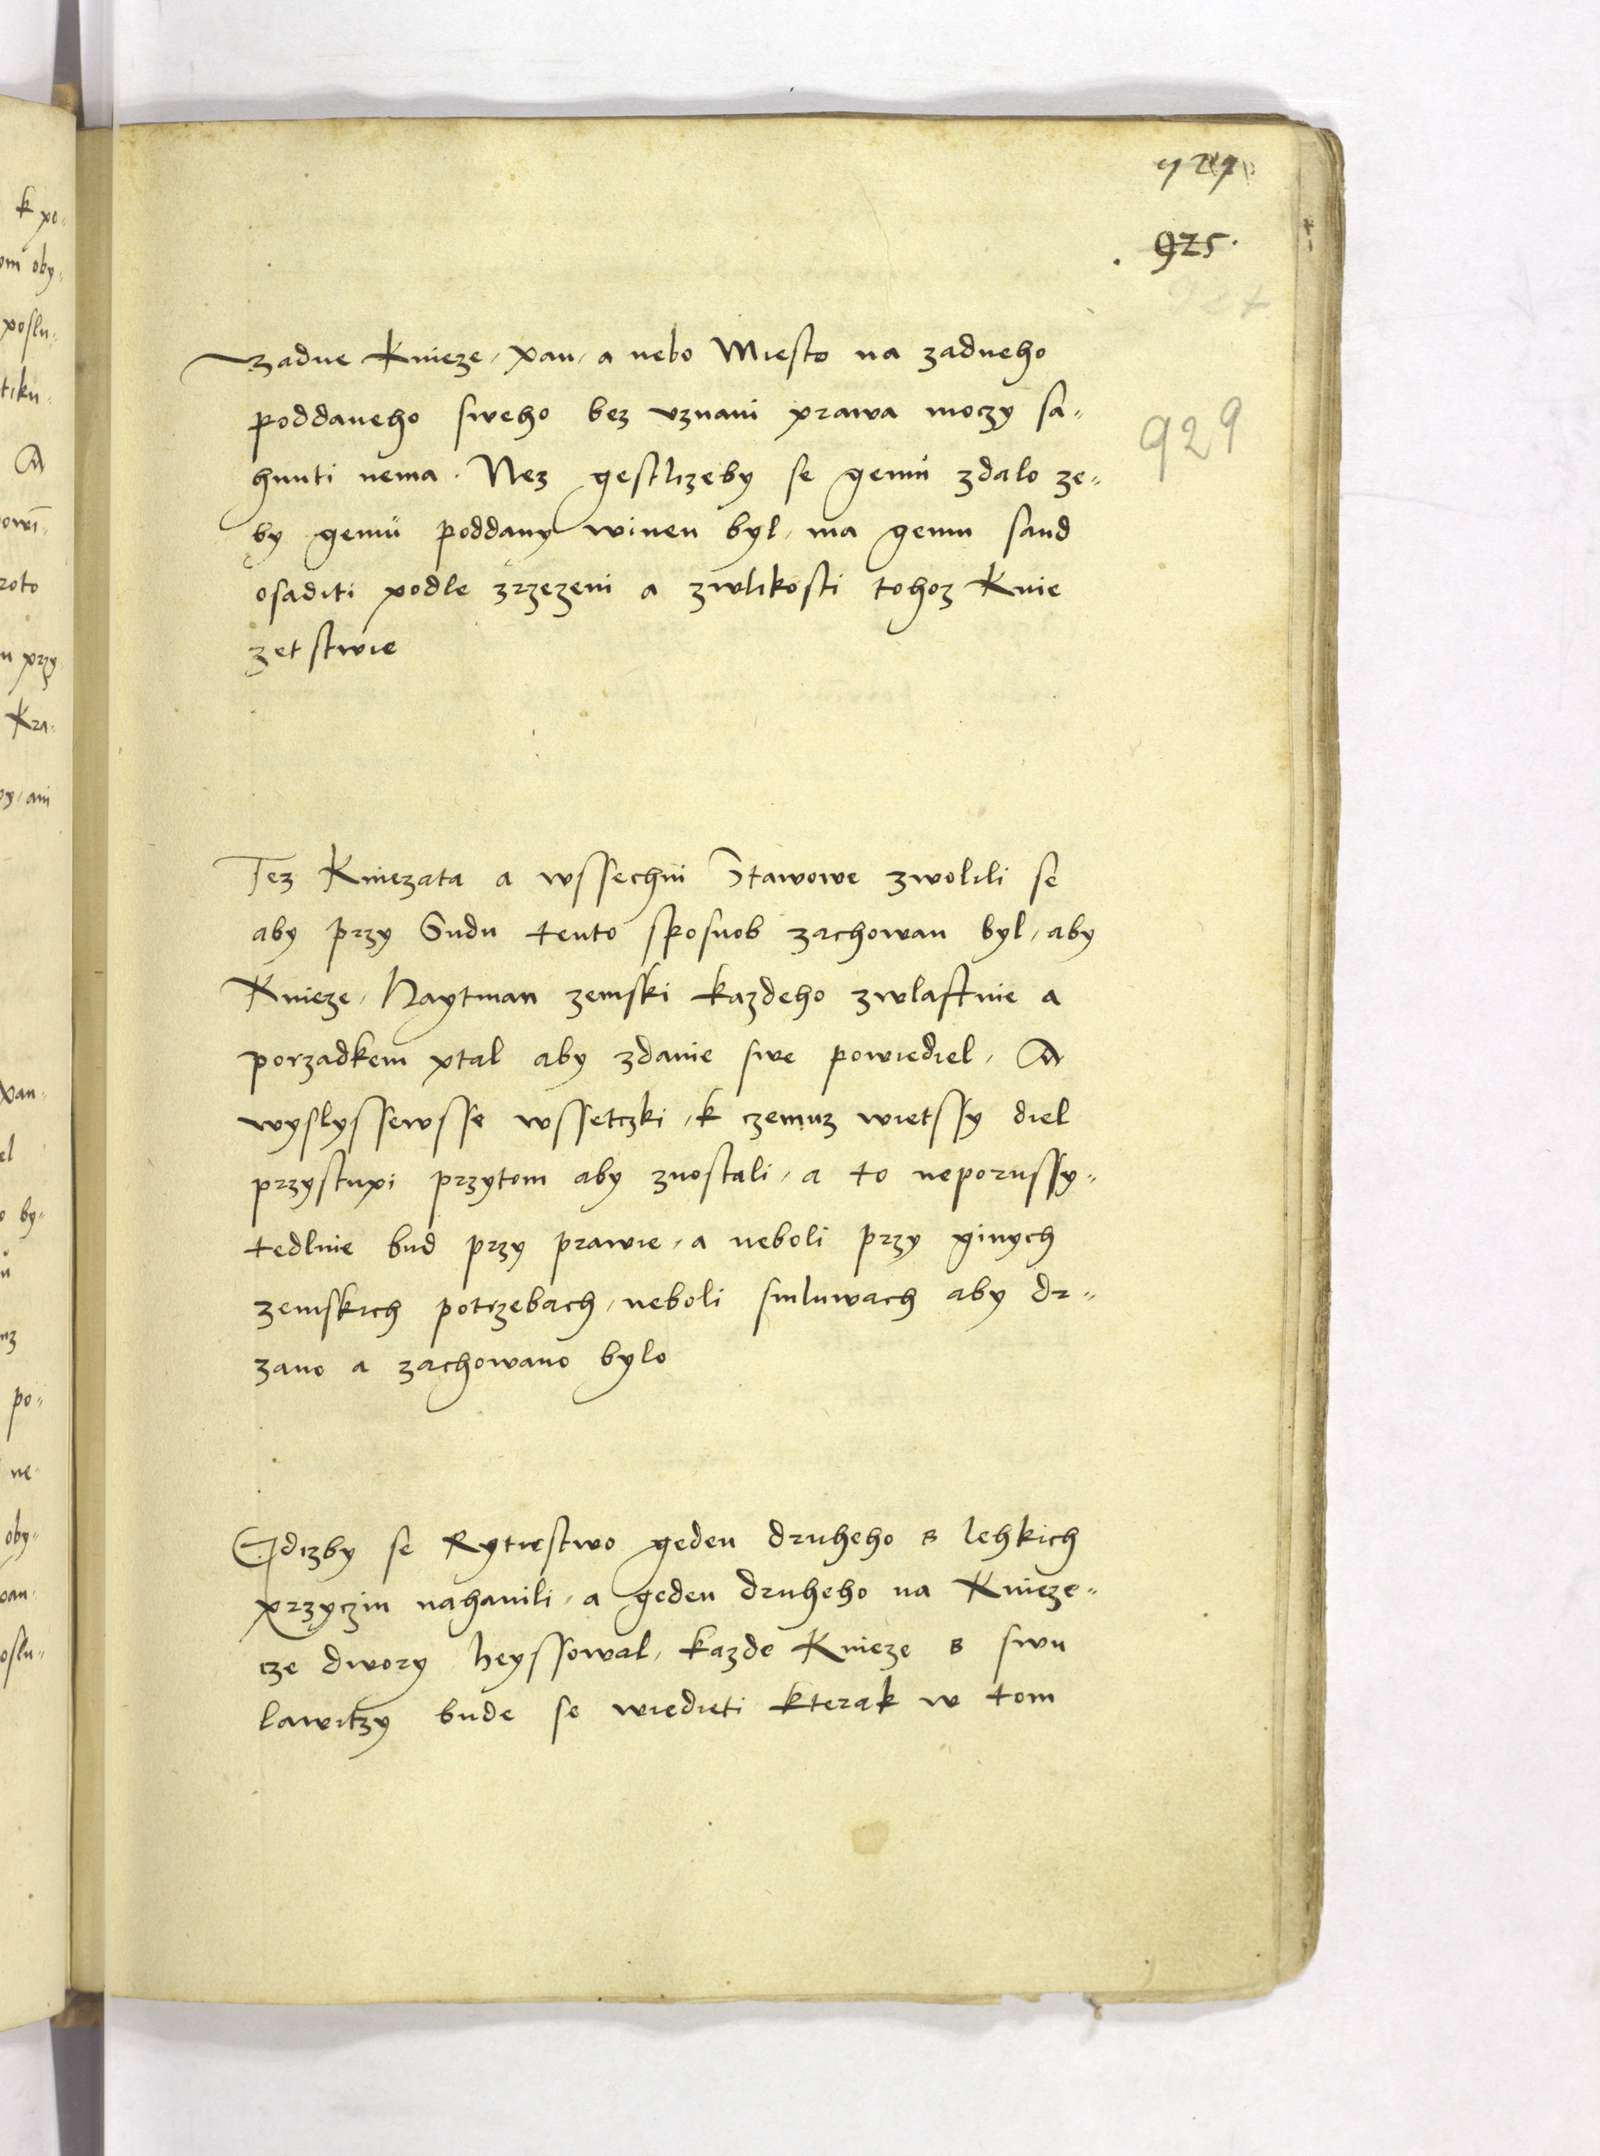 925.
929
Zadne Knieze, pan, a nebo Miesto na zadneho
poddaneho sweho bez vznani prawa moczy sa-
hnuti nema. Nez gestlizeby se gemu zdalo ze-
by gemu poddany winen byl, ma gemu saud
osaditi podle zrzezeni a zwlikosti tohoz Knie
zetstwie
Tez Kniezata a wssechni Stawowe zwolili se
aby przy Sudu tento sposuob zachowan byl, aby
Knieze, Haytman zemski kazdeho zwlastnie a
porzadkem ptal aby zdanie swe powiediel, A
wyslyssewsse wssetczki, k czemuz wietssy diel
przystupi przytom aby zuostali, a to neporussy-
tedlnie bud przy prawie, a neboli przy ginych
zemskich potrzebach, neboli smluwach aby dr-
zano a zachowano bylo
Gdizby se Rytirstwo geden druheho s lehkich
przyczin nahanili, a geden druheho na Knieze-
cze dwory heyssowal, kazde Knieze s swu
lawitzy bude se wiedieti kterak w tom
k po-
om oby-
poslu-
tiku-
A
roto
u przy
Kra-
y, ani
pan-
el
o by-
po-
ne
oby-
pan-
oslu-